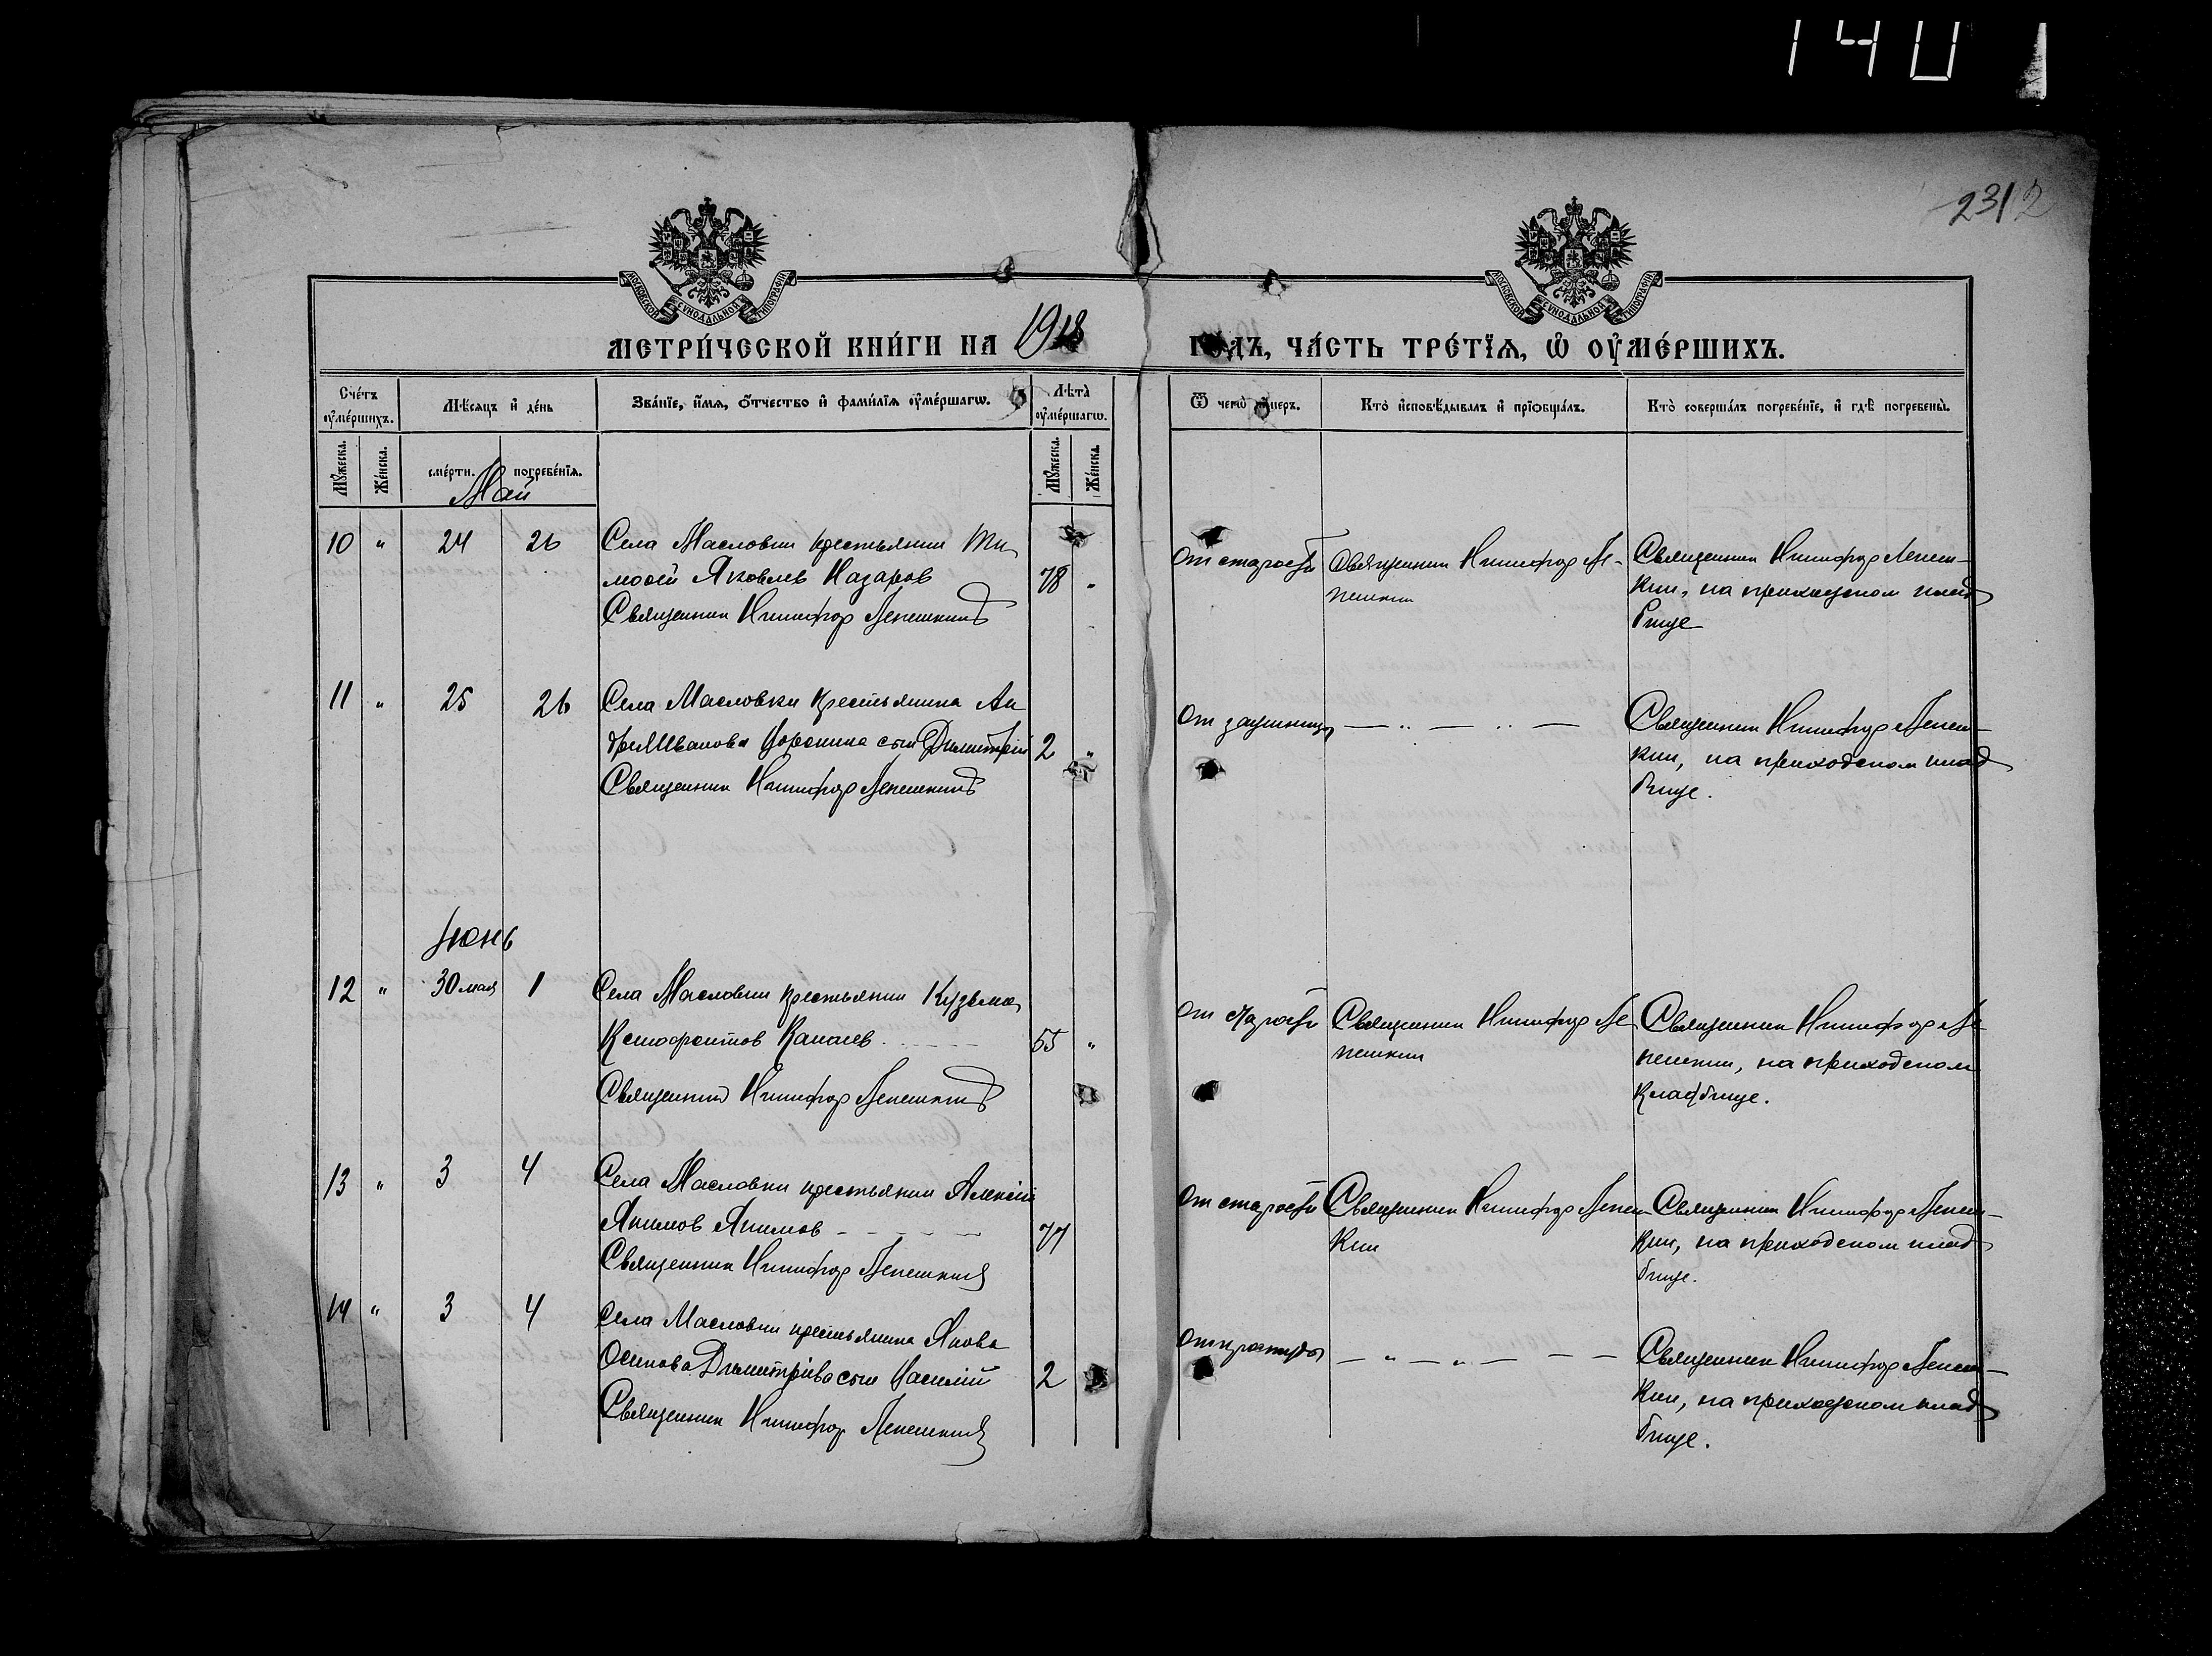 140
2312
МОСКОВСКОЙ СѴНОДАЛЬНОЙ ТИПОГРАФІИ
МОСКОВСКОЙ СѴНОДАЛЬНОЙ ТИПОГРАФІИ
МЕТРИ́ЧЕСКОЙ КНИ́ГИ НА 1918 ГО́ДЪ, ЧА́СТЬ ТРЕ́ТЇЯ, Ѡ҆ ОУ҆МЕ́РШИХЪ.
Сче́тъ оу҆ме́ршихъ.
Мѣ́сяцъ и҆ де́нь
Зва́нїе, и҆́мя, ѻ҆́тчество и҆ фами́лїя оу҆ме́ршагѡ.
Лѣ́та оу҆ме́ршагѡ.
Ѿ чегѡ̀ оу҆́меръ.
Кто̀ и҆сповѣ́дывалъ и҆ прїѻбща́лъ.
Кто̀ соверша́лъ погребе́нїе, и҆ гдѣ̀ погребены̀.
Му́жеска.
Же́нска.
сме́рти.
погребе́нїя.
Му́жеска.
Же́нска.
Май
10 " 24 26 Села Масловки крестьянин Ти
моѳей Яковлев Назаров 78 "
Священник Никифор Лепешкинъ
От старости
Священник Никифор Ле-
пешкин
Священник Никифор Лепеш-
кин, на приходском клад
бище
11 " 25 26 Села Масловки крестьянина Ан
дрея Иванова Воронина сын Димитрій 2 "
Священник Никифор Лепешкинъ
От
— " — " —
Священник Никифор Лепеш-
кин, на приходском клад
бище.
Іюнь
12 " 30 мая 1 Села Масловки крестьянин Кузьма
Ксенофонтов Канаев 55 "
Священник Никифор Лепешкинъ
От старости
Священник Никифор Ле
пешкин
Священник Никифор Ле
пешкин, на приходском
кладбище.
13 " 3 4 Села Масловки крестьянин Алексій
Якимов Якимов 77
Священник Никифор Лепешкин
От старости
Священник Никифор Лепеш
кин
Священник Никифор Лепеш-
кин, на приходском клад
бище.
14 " 3 4 Села Масловки крестьянина Якова
Осипова Димитріева сын Василій 2
Священник Никифор Лепешкин
От простуды
— " — " — — —
Священник Никифор Лепеш-
кин, на приходском клад
бище.